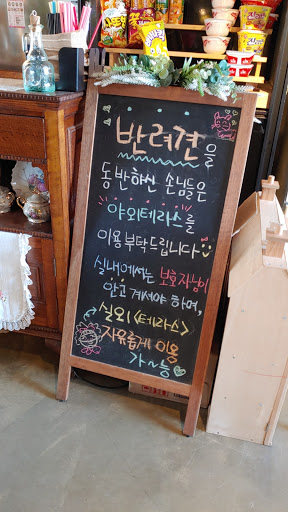 반려견을
동반하신 손님들은
야외테라스를
이용 부탁드립니다
실내에서는 보호자님이
안고 계셔야 하며,
실외 <테라스>
자유롭게 이용
가~능